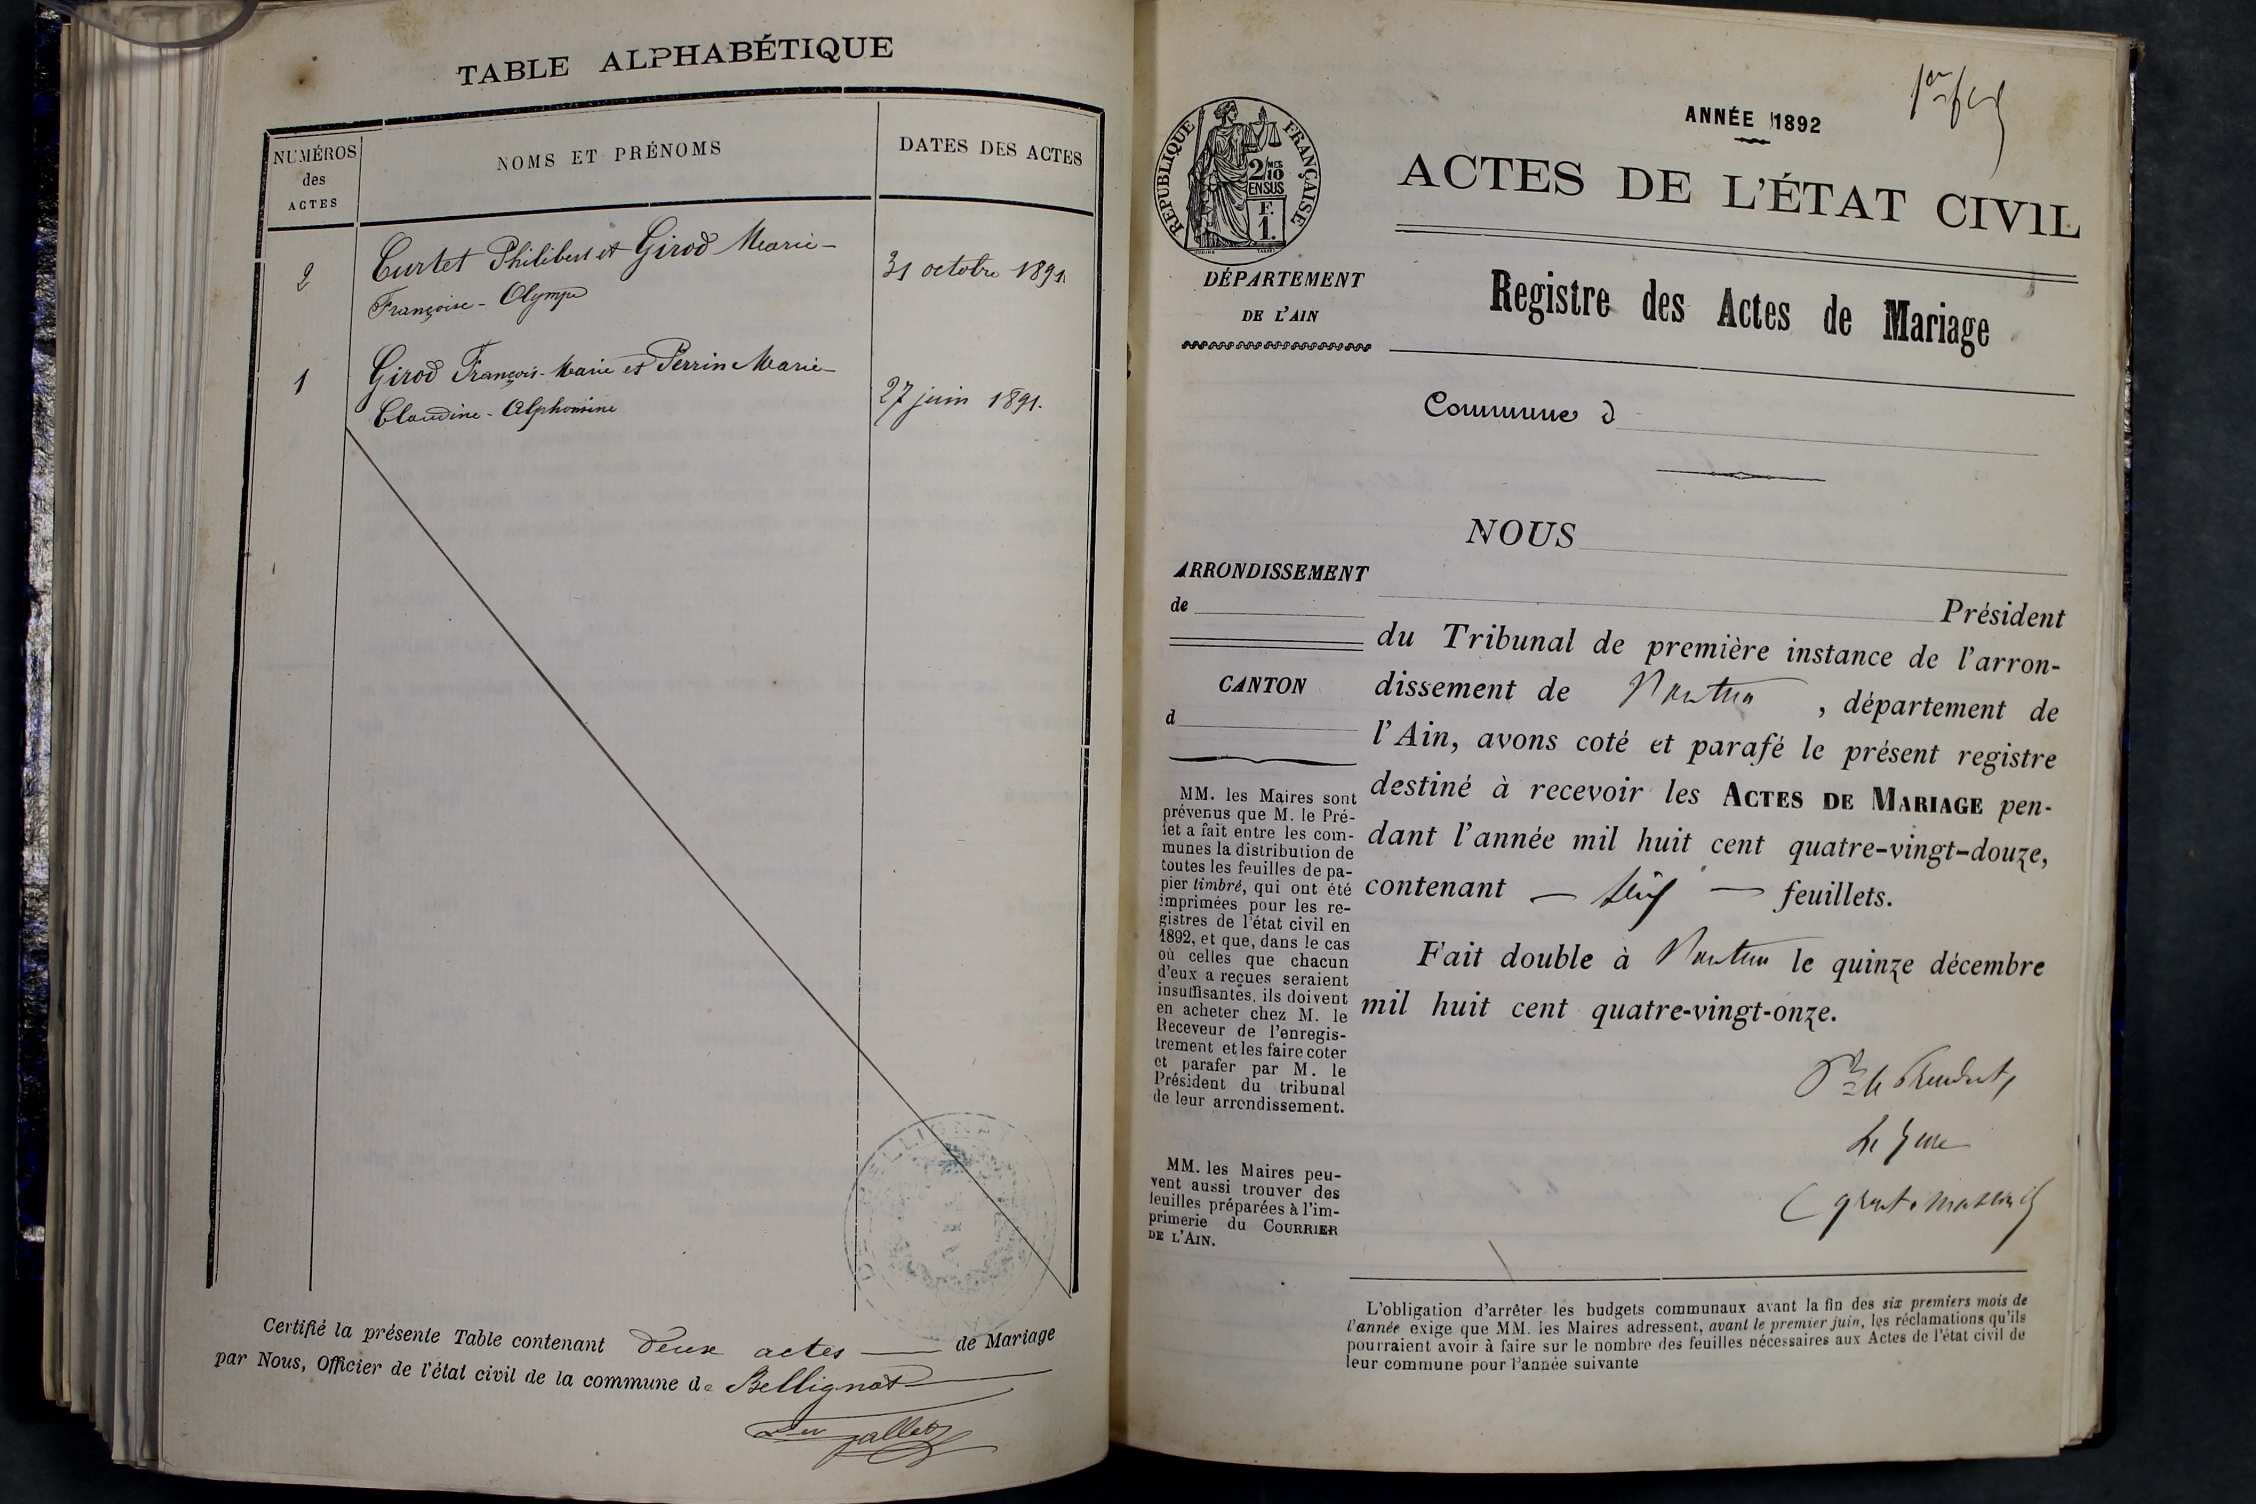 TABLE ALPHABÉTIQUE
NUMÉROS des ACTES
NOMS ET PRÉNOMS
DATES DES ACTES
2
Curtet Philibert et Girod Marie-
Françoise-Olympe
31 octobre 1891.
1
Girod François-Marie et Perrin Marie-
Claudine-Alphonsine
27 juin 1891.
Certifié la présente Table contenant deux actes de Mariage
par Nous, Officier de l'état civil de la commune de Bellignat
BELLIGNAT
ANNÉE 1892
RÉPUBLIQUE FRANÇAISE
2/10 MES
EN SUS
F.
1.
ACTES DE L'ÉTAT CIVIL
DÉPARTEMENT
DE L'AIN
Registre des Actes de Mariage
Commune d
NOUS
ARRONDISSEMENT
de
CANTON
d
Président
du Tribunal de première instance de l'arron-
dissement de Nantua, département de
l'Ain, avons coté et parafé le présent registre
destiné à recevoir les ACTES DE MARIAGE pen-
dant l'année mil huit cent quatre-vingt-douze,
contenant feuillets.
Fait double à Nantua le quinze décembre
mil huit cent quatre-vingt-onze.
Le Juge
MM. les Maires sont
prévenus que M. le Pré-
fet a fait entre les com-
munes la distribution de
toutes les feuilles de pa-
pier timbré, qui ont été
imprimées pour les re-
gistres de l'état civil en
1892, et que, dans le cas
où celles que chacun
d'eux a reçues seraient
insuffisantes, ils doivent
en acheter chez M. le
Receveur de l'enregis-
trement et les faire coter
et parafer par M. le
Président du tribunal
de leur arrondissement.
MM. les Maires peu-
vent aussi trouver des
feuilles préparées à l'im-
primerie du COURRIER
DE L'AIN.
L'obligation d'arrêter les budgets communaux avant la fin des six premiers mois de
l'année exige que MM. les Maires adressent, avant le premier juin, les réclamations qu'ils
pourraient avoir à faire sur le nombre des feuilles nécessaires aux Actes de l'état civil de
leur commune pour l'année suivante